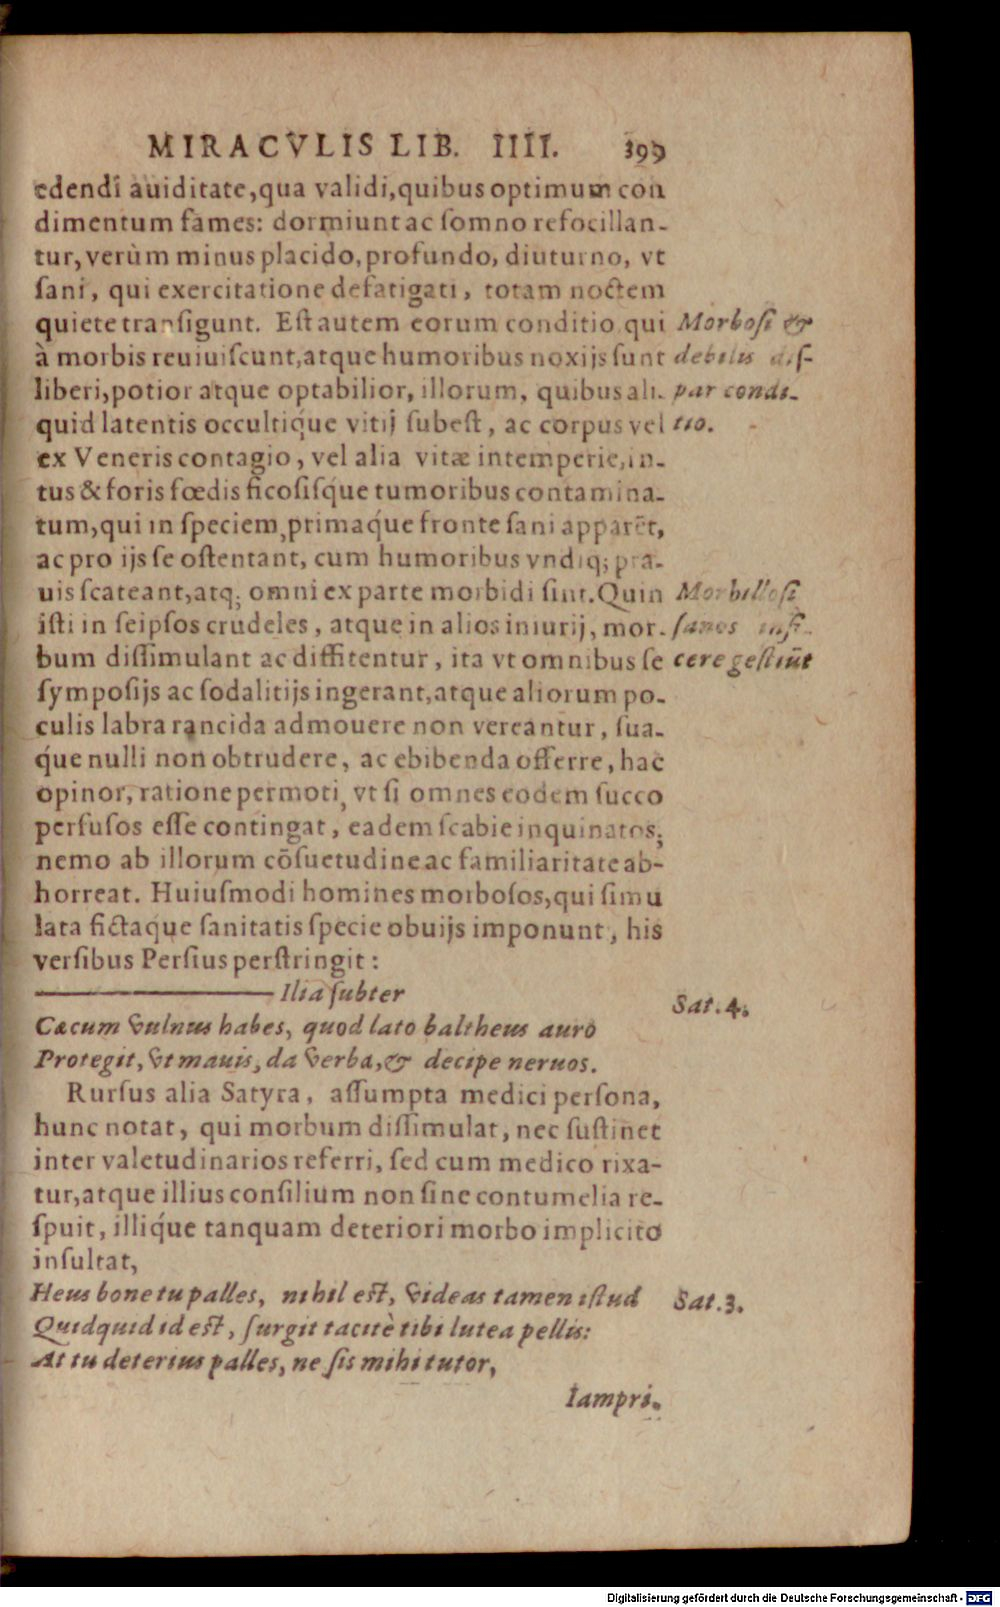 MIRACVLIS LIB. IIII. 399
edendi auiditate, qua validi, quibus optimum con
dimentum fames: dormiunt ac ſomno refocillan-
tur, verùm minus placido, profundo, diuturno, vt
ſani, qui exercitatione defatigati, totam noctem
quiete tranſigunt. Eſt autem eorum conditio qui
à morbis reuiuiſcunt, atque humoribus noxijs ſunt
liberi, potior atque optabilior, illorum, quibus ali-
quid latentis occultiq́ue vitij ſubeſt, ac corpus vel
ex Veneris contagio, vel alia vitæ intemperie, in-
tus & foris fœdis ficoſiſq́ue tumoribus contamina-
tum, qui in ſpeciem, primaq́ue fronte ſani apparēt,
ac pro ijs ſe oſtentant, cum humoribus vndiq; pra-
uis ſcateant, atq; omni ex parte morbidi ſint. Quin
iſti in ſeipſos crudeles, atque in alios iniurij, mor-
bum diſſimulant ac diffitentur, ita vt omnibus ſe
ſympoſijs ac ſodalitijs ingerant, atque aliorum po-
culis labra rancida admouere non vereantur, ſua-
q́ue nulli non obtrudere, ac ebibenda offerre, hac
opinor, ratione permoti, vt ſi omnes eodem ſucco
perfuſos eſſe contingat, eadem ſcabie inquinatos;
nemo ab illorum cōſuetudine ac familiaritate ab-
horreat. Huiuſmodi homines morboſos, qui ſimu
lata fictaque ſanitatis ſpecie obuijs imponunt, his
verſibus Perſius perſtringit:
Ilia ſubter
Cæcum vulnus habes, quod lato baltheus auro
Protegit, vt mauis, da verba, & decipe neruos.
Rurſus alia Satyra, aſſumpta medici perſona,
hunc notat, qui morbum diſſimulat, nec ſuſtinet
inter valetudinarios referri, ſed cum medico rixa-
tur, atque illius conſilium non ſine contumelia re-
ſpuit, illiq́ue tanquam deteriori morbo implicito
inſultat,
Heus bone tu palles, nihil eſt, videas tamen iſtud
Quidquid id eſt, ſurgit tacitè tibi lutea pellis:
At tu deterius palles, ne ſis mihi tutor,
Iampri-
Morboſi &
debilis diſ-
par condi-
tio.
Morbilloſi
ſanos infi-
cere geſtiūt
Sat. 4.
Sat. 3.
Digitalisierung gefördert durch die Deutsche Forschungsgemeinschaft - DFG